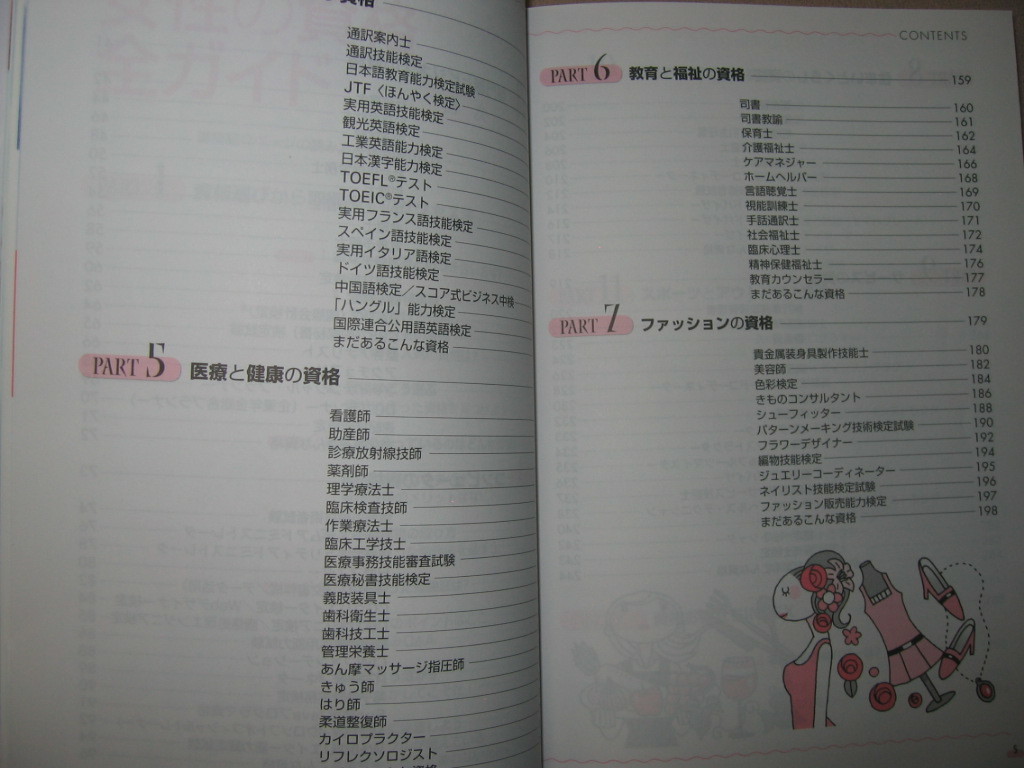 の資格
通訳案内士
通訳技能検定
日本語教育能力検定試験
JTF〈ほんやく検定〉
実用英語技能検定
観光英語検定
工業英語能力検定
日本漢字能力検定
TOEFL®テスト
TOEIC®テスト
実用フランス語技能検定
スペイン語技能検定
実用イタリア語検定
ドイツ語技能検定
中国語検定／スコア式ビジネス中検
「ハングル」能力検定
国際連合公用語英語検定
まだあるこんな資格
PART 5 医療と健康の資格
看護師
助産師
診療放射線技師
薬剤師
理学療法士
臨床検査技師
作業療法士
臨床工学技士
医療事務技能審査試験
医療秘書技能検定
義肢装具士
歯科衛生士
歯科技工士
管理栄養士
あん摩マッサージ指圧師
きゅう師
はり師
柔道整復師
カイロプラクター
リフレクソロジスト
CONTENTS
PART 6 教育と福祉の資格 159
司書 160
司書教諭 161
保育士 162
介護福祉士 164
ケアマネジャー 166
ホームヘルパー 168
言語聴覚士 169
視能訓練士 170
手話通訳士 171
社会福祉士 172
臨床心理士 174
精神保健福祉士 176
教育カウンセラー 177
まだあるこんな資格 178
PART 7 ファッションの資格 179
貴金属装身具製作技能士 180
美容師 182
色彩検定 184
きものコンサルタント 186
シューフィッター 188
パターンメーキング技術検定試験 190
フラワーデザイナー 192
編物技能検定 194
ジュエリーコーディネーター 195
ネイリスト技能検定試験 196
ファッション販売能力検定 197
まだあるこんな資格 198